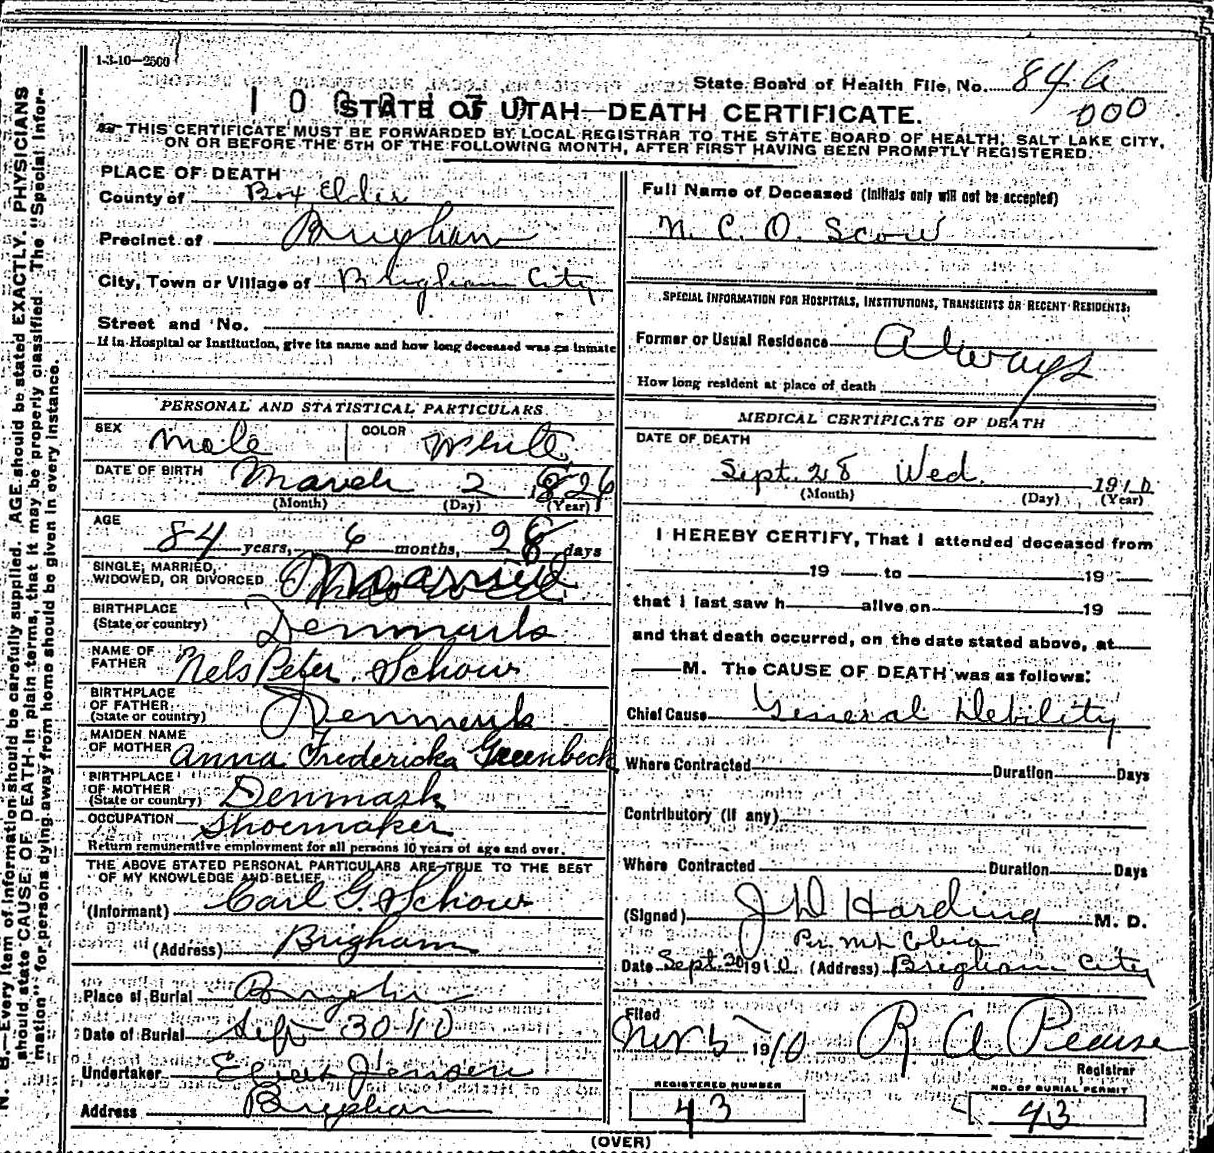 1-3-10-2500
State Board of Health File No. 84 a
000
STATE OF UTAH—DEATH CERTIFICATE.
THIS CERTIFICATE MUST BE FORWARDED BY LOCAL REGISTRAR TO THE STATE BOARD OF HEALTH, SALT LAKE CITY,
ON OR BEFORE THE 5TH OF THE FOLLOWING MONTH, AFTER FIRST HAVING BEEN PROMPTLY REGISTERED.
PLACE OF DEATH
County of Box Elder
Precinct of Brigham
City, Town or Village of Brigham City
Street and No.
If in Hospital or Institution, give its name and how long deceased was an inmate
PERSONAL AND STATISTICAL PARTICULARS
SEX Male COLOR White
DATE OF BIRTH March 2 1826
(Month) (Day) (Year)
AGE
84 years, 6 months, 26 days
SINGLE, MARRIED,
WIDOWED, OR DIVORCED Married
BIRTHPLACE
(State or country) Denmark
NAME OF
FATHER Nels Peter Schow
BIRTHPLACE
OF FATHER
(State or country) Denmark
MAIDEN NAME
OF MOTHER Anna Fredericka Greenbeck
BIRTHPLACE
OF MOTHER
(State or country) Denmark
OCCUPATION Shoemaker
Return remunerative employment for all persons 10 years of age and over.
THE ABOVE STATED PERSONAL PARTICULARS ARE TRUE TO THE BEST
OF MY KNOWLEDGE AND BELIEF
(Informant) Carl G. Schow
(Address) Brigham
Place of Burial Brigham
Date of Burial Sept 30-10
Undertaker Jensen
Address Brigham
Full Name of Deceased (Initials only will not be accepted)
N. C. O. Scow
SPECIAL INFORMATION FOR HOSPITALS, INSTITUTIONS, TRANSIENTS OR RECENT RESIDENTS:
Former or Usual Residence Always
How long resident at place of death
MEDICAL CERTIFICATE OF DEATH
DATE OF DEATH
Sept. 28 Wed. 1910
(Month) (Day) (Year)
I HEREBY CERTIFY, That I attended deceased from
19 to 19
that I last saw h alive on 19
and that death occurred, on the date stated above, at
M. The CAUSE OF DEATH was as follows:
Chief Cause General Debility
Where Contracted Duration Days
Contributory (if any)
Where Contracted Duration Days
(Signed) J D Harding M. D.
Date Sept. 30 1910. (Address) Brigham City
Filed
Nov 5 1910 R A Pearse
Registrar
REGISTERED NUMBER
43
NO. OF BURIAL PERMIT
43
(OVER)
N. B.—Every item of information should be carefully supplied. AGE should be stated EXACTLY. PHYSICIANS
should state CAUSE OF DEATH in plain terms, that it may be properly classified. The "Special Infor-
mation" for persons dying away from home should be given in every instance.